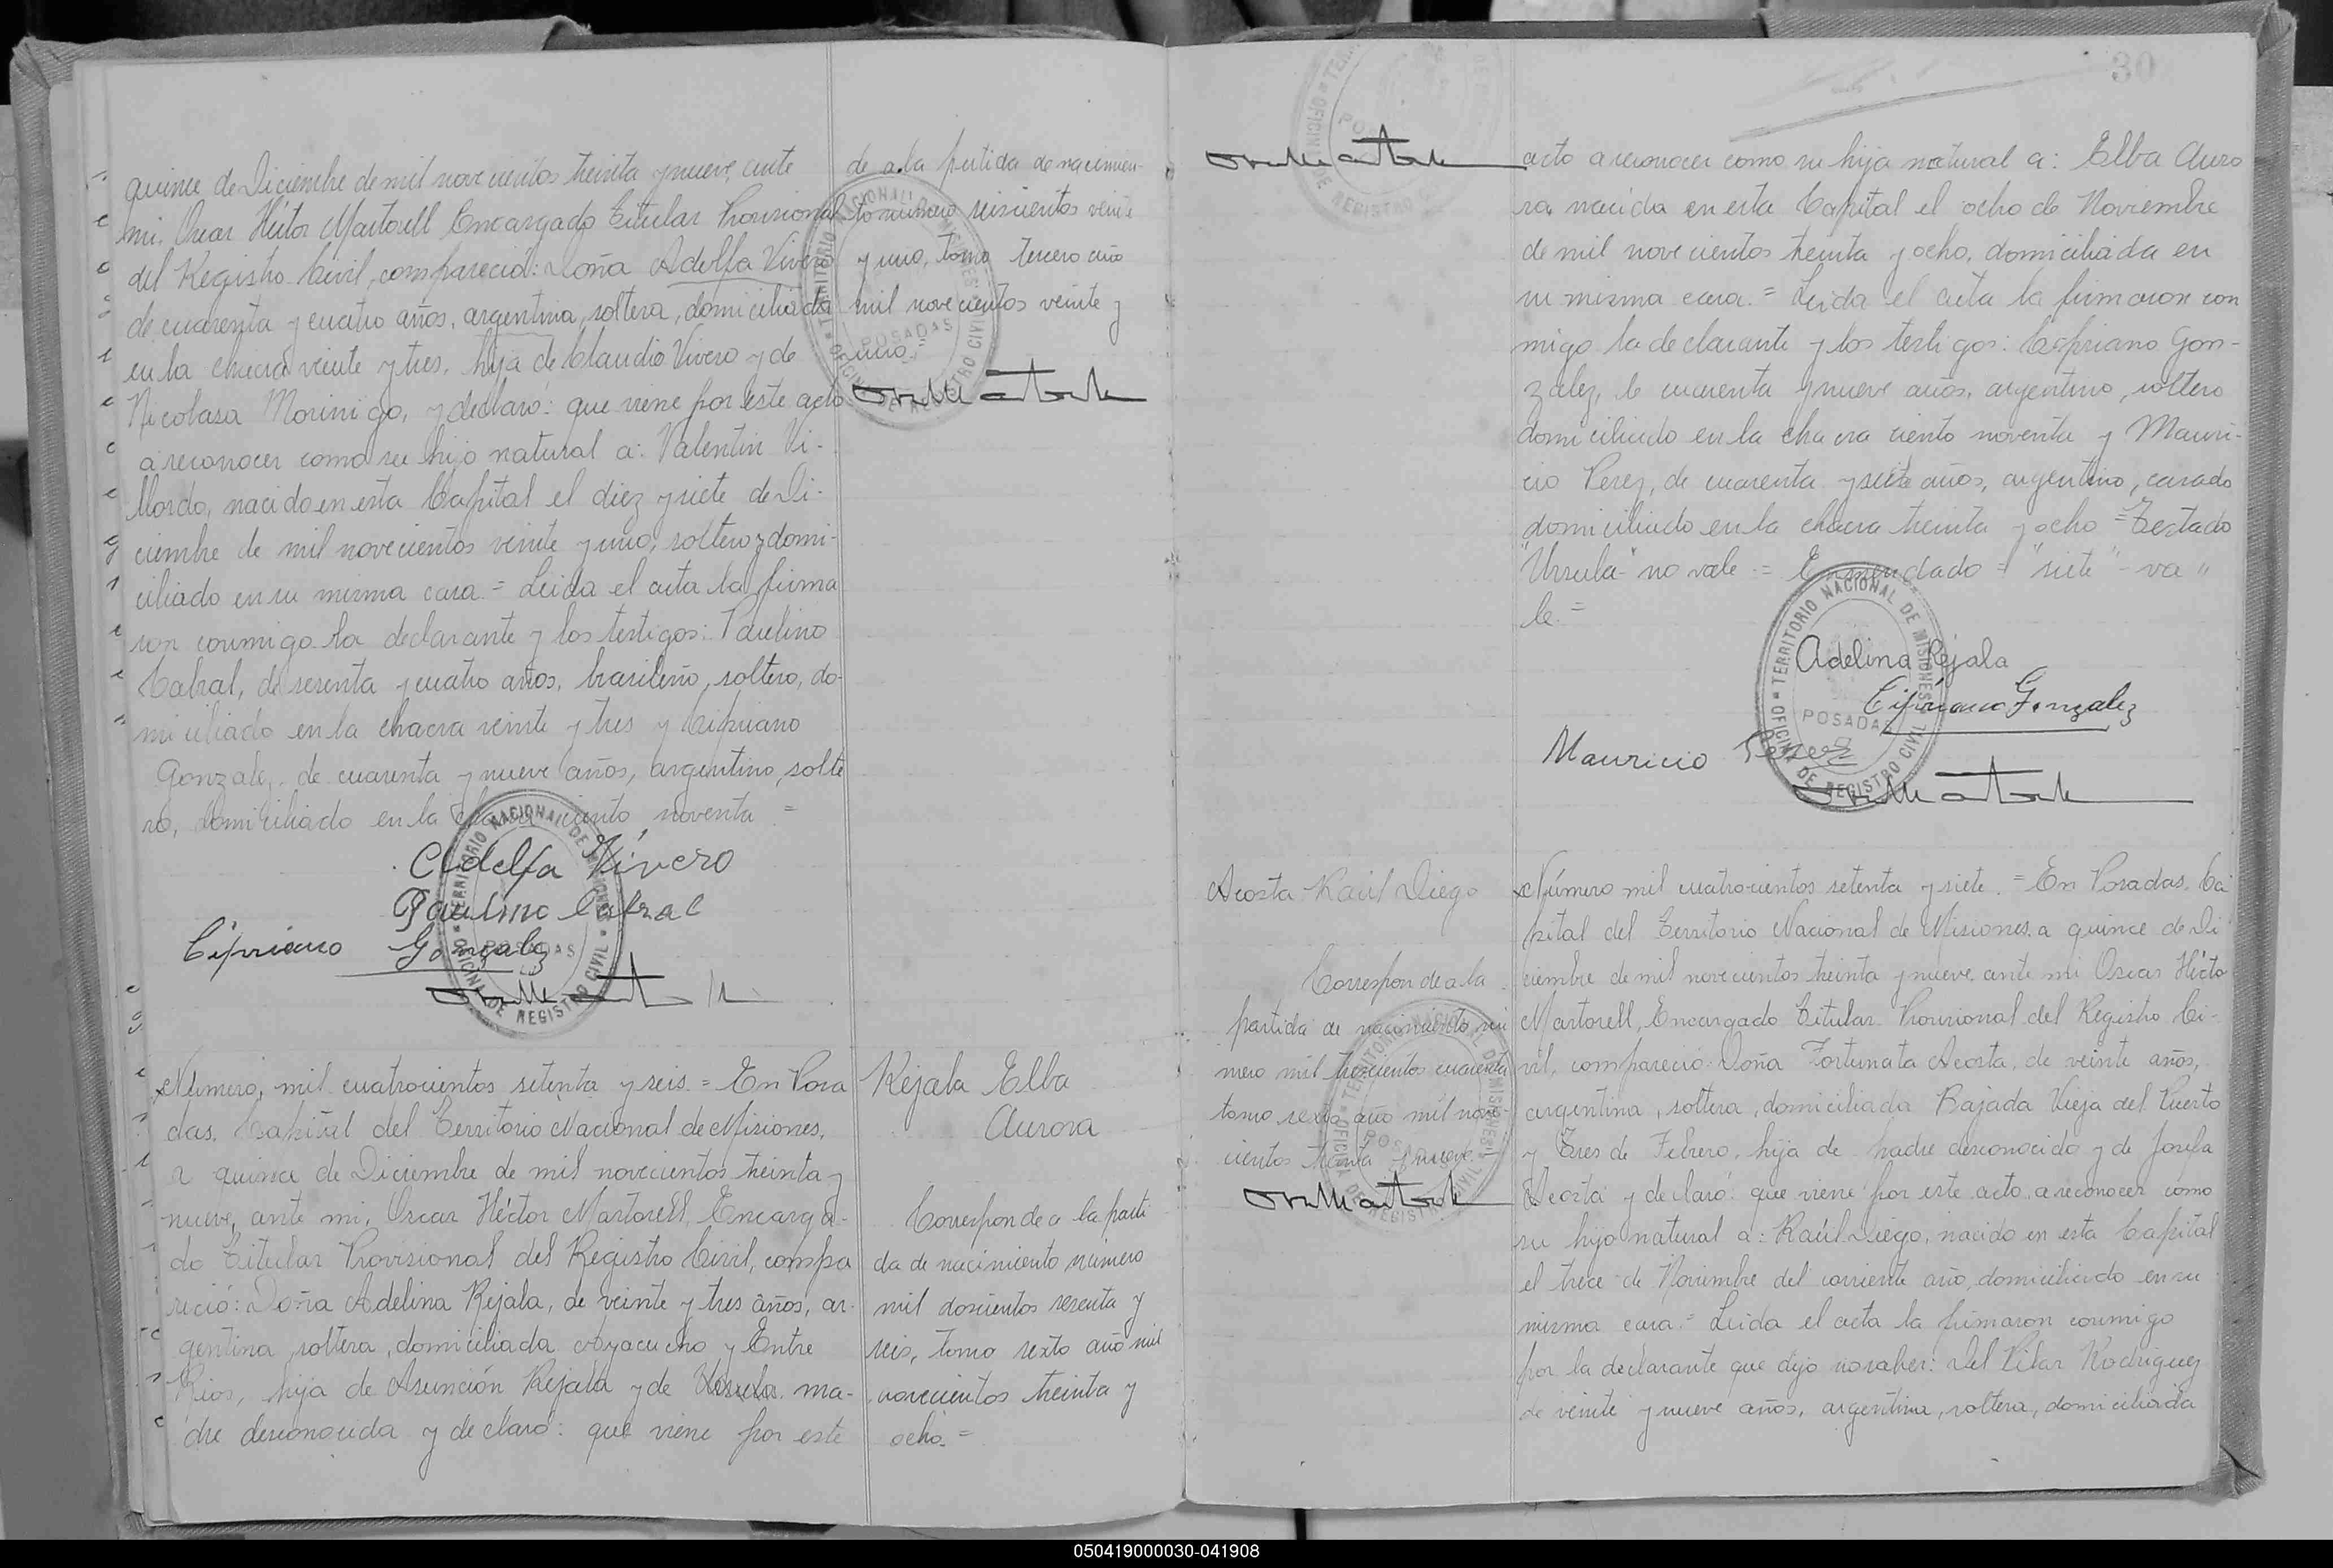 quince de Diciembre de mil novecientos treinta y nueve, ante
mi, Oscar Héctor Martorell Encargado Titular Provisional
del Registro Civil, compareció: Doña Adelfa Vivero
de cuarenta y cuatro años, argentina, soltera, domiciliada
en la chacra veinte y tres, hija de Claudio Vivero y de
Nicolasa Morinigo, y declaró: que viene por este acto
a reconocer como su hijo natural a: Valentin Vi-
llordo, nacido en esta Capital el diez y siete de Di-
ciembre de mil novecientos veinte y uno, soltero y domi-
ciliado en su misma casa = Leida el acta la firma
ron conmigo la declarante y los testigos: Paulino
Cabral, de sesenta y cuatro años, brasileño, soltero, do-
miciliado en la chacra veinte y tres y Cipriano
Gonzalez, de cuarenta y nueve años, argentino, solte
ro, domiciliado en la chacra ciento noventa =
Adelfa Vivero
Paulino Cabral
Cipriano Gonzalez
de a la partida de nacimien-
to número seiscientos veinte
y uno, tomo tercero año
mil novecientos veinte y
uno =
TERRITORIO NACIONAL DE MISIONES
OFICINA DE REGISTRO CIVIL
POSADAS
Número, mil cuatrocientos setenta y seis = En Posa
das, Capital del Territorio Nacional de Misiones,
a quince de Diciembre de mil novecientos treinta y
nueve, ante mi, Oscar Héctor Martorell, Encarga-
do Titular Provisional del Registro Civil, compa
reció: Doña Adelina Rejala, de veinte y tres años, ar-
gentina, soltera, domiciliada Ayacucho y Entre
Rios, hija de Asunción Rejala y de Ursula ma-
dre desconocida y declaró: que viene por este
Rejala Elba
Aurora
Corresponde a la parti
da de nacimiento número
mil doscientos sesenta y
seis, tomo sexto año mil
novecientos treinta y
ocho =
30
acto a reconocer como su hija natural a: Elba Auro
ra, nacida en esta Capital el ocho de Noviembre
de mil novecientos treinta y ocho, domiciliada en
su misma casa = Leida el acta la firmaron con
migo la declarante y los testigos: Cipriano Gon-
zalez, de cuarenta y nueve años, argentino, soltero
domiciliado en la chacra ciento noventa y Mauri-
cio Perez, de cuarenta y siete años, argentino, casado
domiciliado en la chacra treinta y ocho = Testado
"Ursula" no vale = Enmendado = "siete" - va "
le =
Adelina Rejala
Cipriano Gonzalez
Mauricio Perez
TERRITORIO NACIONAL DE MISIONES
OFICINA DE REGISTRO CIVIL
POSADAS
Acosta Raúl Diego
Corresponde a la
partida de nacimiento nú
mero mil trescientos cuarenta
tomo sexto año mil nove-
cientos treinta y nueve
Número mil cuatrocientos setenta y siete = En Posadas, Ca
pital del Territorio Nacional de Misiones, a quince de Di
ciembre de mil novecientos treinta y nueve, ante mi Oscar Hécto
Martorell, Encargado Titular Provisional del Registro Ci-
vil, compareció: Doña Fortunata Acosta, de veinte años,
argentina, soltera, domiciliada Bajada Vieja del Puerto
y Tres de Febrero, hija de padre desconocido y de Josefa
Acosta y declaró: que viene por este acto, a reconocer como
su hijo natural a: Raúl Diego, nacido en esta Capital
el trece de Noviembre del corriente año, domiciliado en su
misma casa = Leida el acta la firmaron conmigo
por la declarante que dijo no saber: Del Pilar Rodriguez
de veinte y nueve años, argentina, soltera, domiciliada
050419000030-041908